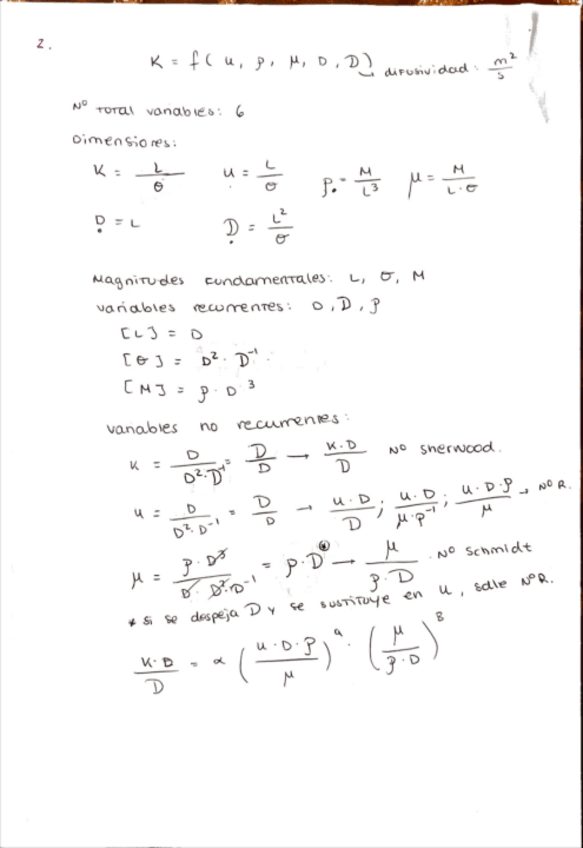 2.
K = f( u, ρ, μ, D, D) difusividad: m²/s
Nº Total variables: 6
Dimensiones:
K = L/θ    u = L/θ    ρ = M/L³    μ = M/L·θ
D = L    D = L²/θ
Magnitudes fundamentales: L, θ, M
variables recurrentes: D, D, ρ
[L] = D
[θ] = D²·D⁻¹
[M] = ρ·D³
variables no recurrentes:
K = D/D²·D⁻¹ = D/D → K·D/D Nº Sherwood.
u = D/D²·D⁻¹ = D/D → u·D/D ; u·D/μ·ρ⁻¹ ; u·D·ρ/μ → Nº R.
μ = ρ·D³/D·D²·D⁻¹ = ρ·D → μ/ρ·D . Nº Schmidt
* si se despeja D y se sustituye en u, sale Nº R.
K·D/D = α (u·D·ρ/μ)ᵃ · (μ/ρ·D)ᴮ